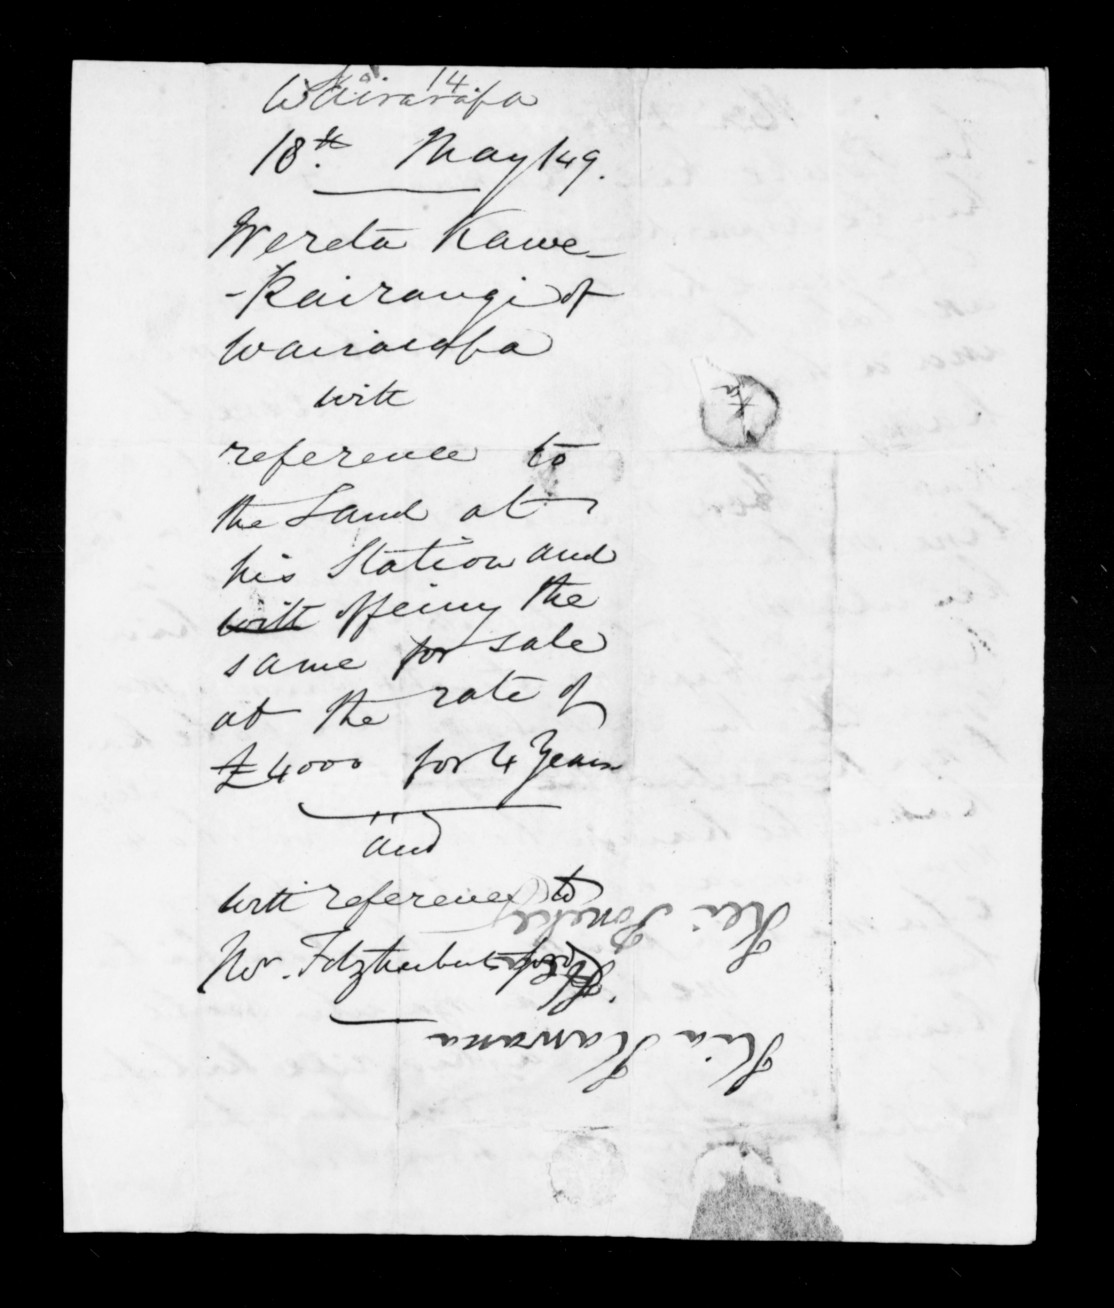 No. 14.
Wairarapa
18th. May /49.
Wereta Kawe-
-Kairangi of
Wairarapa
with
reference to
the Land at
his Station and
with offeiny the
same for sale
at the rate of
£4000 for 4 Years
and
with reference to
Mr. Fitzherberts
Kia Kawana
Kei Poneke